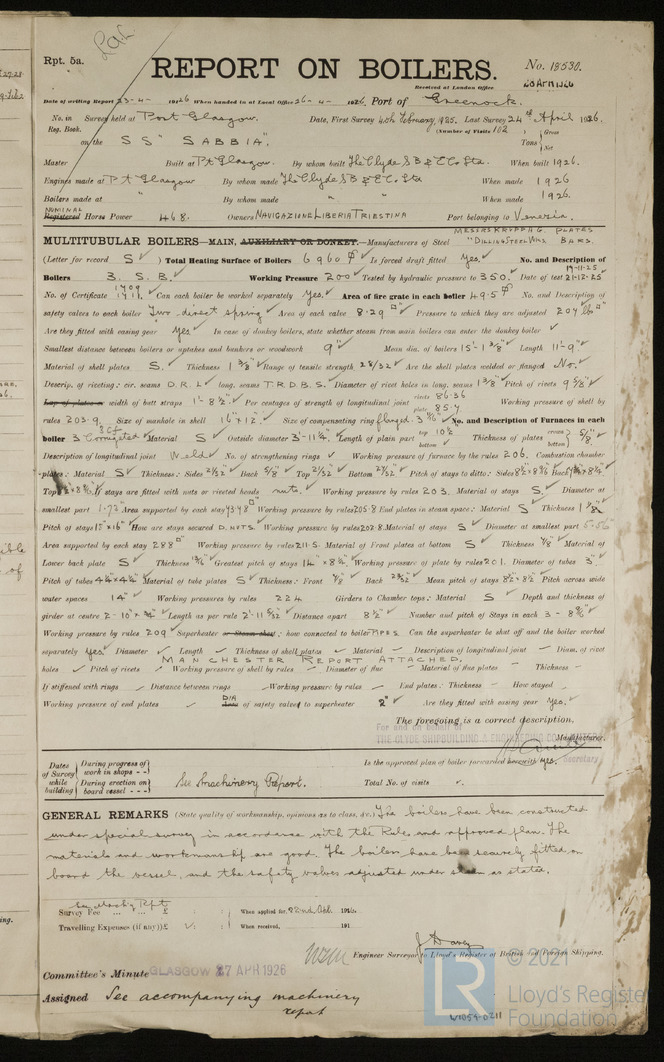 Rpt. 5a.
REPORT ON BOILERS.
No. 18530.
Received at London Office
28 APR 1926
Date of writing Report 23-4- 1926 When handed in at Local Office 26-4- 1926. Port of Greenock.
No. in Survey held at Port Glasgow. Date, First Survey 4th February, 1925. Last Survey 24th April 1926.
Reg. Book.
(Number of Visits 102)
on the SS "SABBIA". Tons { Gross Net
Master Built at Pt Glasgow. By whom built The Clyde S B & E Co Ltd. When built 1926.
Engines made at Pt Glasgow By whom made The Clyde S B & E Co Ltd When made 1926
Boilers made at " By whom made " " When made 1926.
NOMINAL
Registered Horse Power 468. Owners NAVIGAZIONE LIBERIA TRIESTINA Port belonging to Venezia.
MULTITUBULAR BOILERS—MAIN, AUXILIARY OR DONKEY.—Manufacturers of Steel MESSRS KRUPP A G. PLATES
"DILLING STEEL BARS.
(Letter for record S) Total Heating Surface of Boilers 6960 Is forced draft fitted Yes. No. and Description of
Boilers 3. S. B. Working Pressure 200 Tested by hydraulic pressure to 350. Date of test 19-11-25 21-12-25
No. of Certificate 1709 1711. Can each boiler be worked separately Yes. Area of fire grate in each boiler 49.5 No. and Description of
safety valves to each boiler Two direct spring Area of each valve 8.29 Pressure to which they are adjusted 204 lb
Are they fitted with easing gear Yes. In case of donkey boilers, state whether steam from main boilers can enter the donkey boiler
Smallest distance between boilers or uptakes and bunkers or woodwork 9" Mean dia. of boilers 15'-1 3/8" Length 11'-9"
Material of shell plates S. Thickness 1 3/8" Range of tensile strength 28/32 Are the shell plates welded or flanged No.
Descrip. of riveting: cir. seams D.R.L long. seams T.R.D.B.S. Diameter of rivet holes in long. seams 1 3/8" Pitch of rivets 9 5/8"
Lap of plates or width of butt straps 1'-8 1/2". Per centages of strength of longitudinal joint rivets 86.36 plate 85.7 Working pressure of shell by
rules 203.9. Size of manhole in shell 16" x 12" Size of compensating ring flanged No. and Description of Furnaces in each
boiler 3 Corrugated Material S Outside diameter 3'-11 1/4" Length of plain part top bottom Thickness of plates crown bottom } 5/8"
Description of longitudinal joint Weld No. of strengthening rings Working pressure of furnace by the rules 206. Combustion chamber
plates: Material S Thickness: Sides 21/32 Back 5/8" Top 21/32 Bottom 27/32 Pitch of stays to ditto: Sides Back
Top If stays are fitted with nuts or riveted heads nuts. Working pressure by rules 203. Material of stays S. Diameter at
smallest part 1.72 Area supported by each stay Working pressure by rules 205.8 End plates in steam space: Material S Thickness
Pitch of stays How are stays secured D.NUTS. Working pressure by rules 202.8. Material of stays S Diameter at smallest part
Area supported by each stay 288 Working pressure by rules 211.5. Material of Front plates at bottom S Thickness 7/8" Material of
Lower back plate S Thickness Greatest pitch of stays 14 x 8 1/2 Working pressure of plate by rules 201. Diameter of tubes 3"
Pitch of tubes 4 1/4 x 4 1/4 Material of tube plates S Thickness: Front 7/8 Back Mean pitch of stays 8 1/2 x 8 1/2 Pitch across wide
water spaces 14" Working pressures by rules 224 Girders to Chamber tops: Material S Depth and thickness of
girder at centre Length as per rule 2'-11 5/32 Distance apart 8 1/2 Number and pitch of Stays in each 3-8 3/8"
Working pressure by rules 209 Superheater or Steam chest: how connected to boiler PIPES Can the superheater be shut off and the boiler worked
separately Yes Diameter Length Thickness of shell plates Material Description of longitudinal joint Diam. of rivet
MANCHESTER REPORT ATTACHED.
holes Pitch of rivets Working pressure of shell by rules Diameter of flue Material of flue plates Thickness
If stiffened with rings Distance between rings Working pressure by rules End plates: Thickness How stayed
Working pressure of end plates DIA of safety valves to superheater 2" Are they fitted with easing gear Yes.
The foregoing is a correct description,
For and on behalf of
THE CLYDE SHIPBUILDING & ENGINEERING CO
Manufacturer.
Secretary
Dates of Survey while building
During progress of work in shops - -
During erection on board vessel - - -
See Machinery Report.
Is the approved plan of boiler forwarded herewith Yes.
Total No. of visits
GENERAL REMARKS (State quality of workmanship, opinions as to class, &c.) The boilers have been constructed
under special survey in accordance with the Rules and approved plan. The
materials and workmanship are good. The boilers have been securely fitted on
board the vessel, and the safety valves adjusted under steam as stated.
See Mach'y Rpt
Survey Fee ... ... £ : : When applied for, 22nd Apl. 1926.
Travelling Expenses (if any) £ : : When received, 191
J Davey
Engineer Surveyor to Lloyd's Register of British and Foreign Shipping.
Committee's Minute GLASGOW 27 APR 1926
Assigned See accompanying machinery
report
© 2021
Lloyd's Register
Foundation
W1059-0211